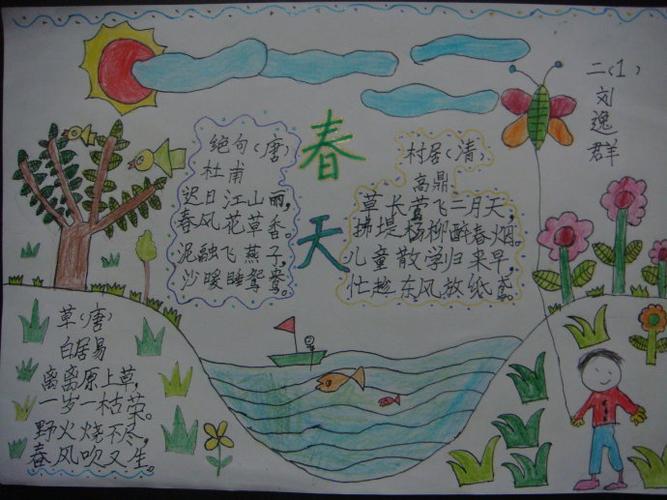 春天
二(1)
刘逸群
绝句(唐)
杜甫
迟日江山丽,
春风花草香。
泥融飞燕子,
沙暖睡鸳鸯。
村居(清)
高鼎
草长莺飞二月天,
拂堤杨柳醉春烟。
儿童散学归来早,
忙趁东风放纸鸢。
草(唐)
白居易
离离原上草,
一岁一枯荣。
野火烧不尽,
春风吹又生。